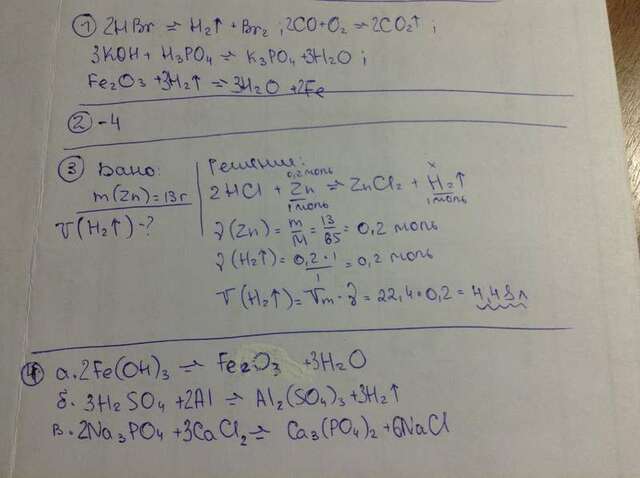 ① 2HBr ⇌ H₂↑ + Br₂ ; 2CO + O₂ ⇌ 2CO₂↑ ;
3KOH + H₃PO₄ ⇌ K₃PO₄ + 3H₂O ;
Fe₂O₃ + 3H₂↑ ⇌ 3H₂O + 2Fe
② -4
③ Дано:
m(Zn) = 13г
V(H₂↑) - ?
Решение:
0,2 моль x
2HCl + Zn ⇌ ZnCl₂ + H₂↑
1 моль 1 моль
ν(Zn) = m/M = 13/65 = 0,2 моль
ν(H₂↑) = 0,2•1/1 = 0,2 моль
V(H₂↑) = Vm · ν = 22,4 • 0,2 = 4,48 л
④ а. 2Fe(OH)₃ ⇌ Fe₂O₃ + 3H₂O
б. 3H₂SO₄ + 2Al ⇌ Al₂(SO₄)₃ + 3H₂↑
в. 2Na₃PO₄ + 3CaCl₂ ⇌ Ca₃(PO₄)₂ + 6NaCl